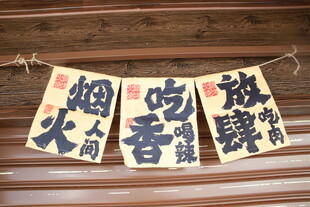 烟火
人间
吃香
喝辣
放肆
吃肉